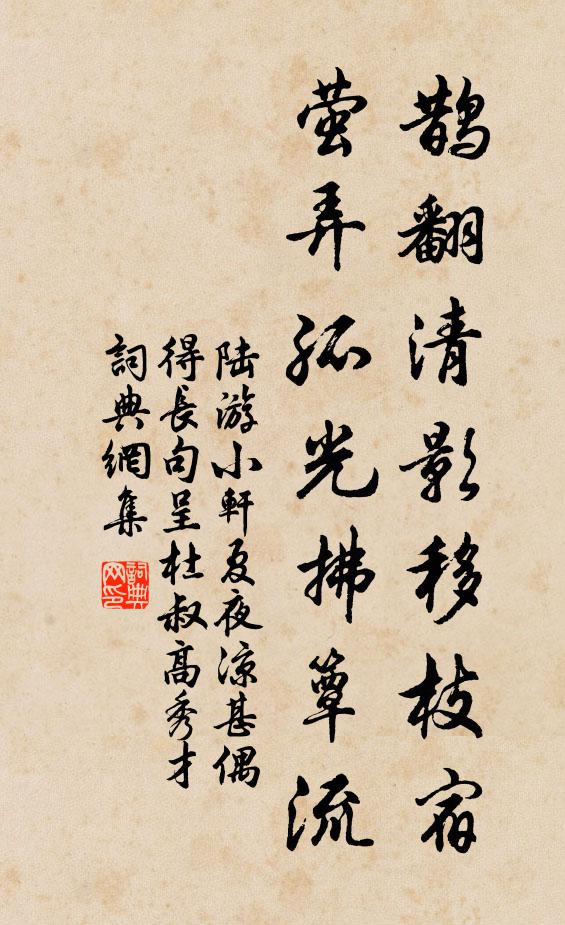 鵲翻清影移枝宿
螢弄孤光拂簟流
陆游小軒夏夜涼甚偶
得長句呈杜叔高秀才
詞典網集
詞典
网印